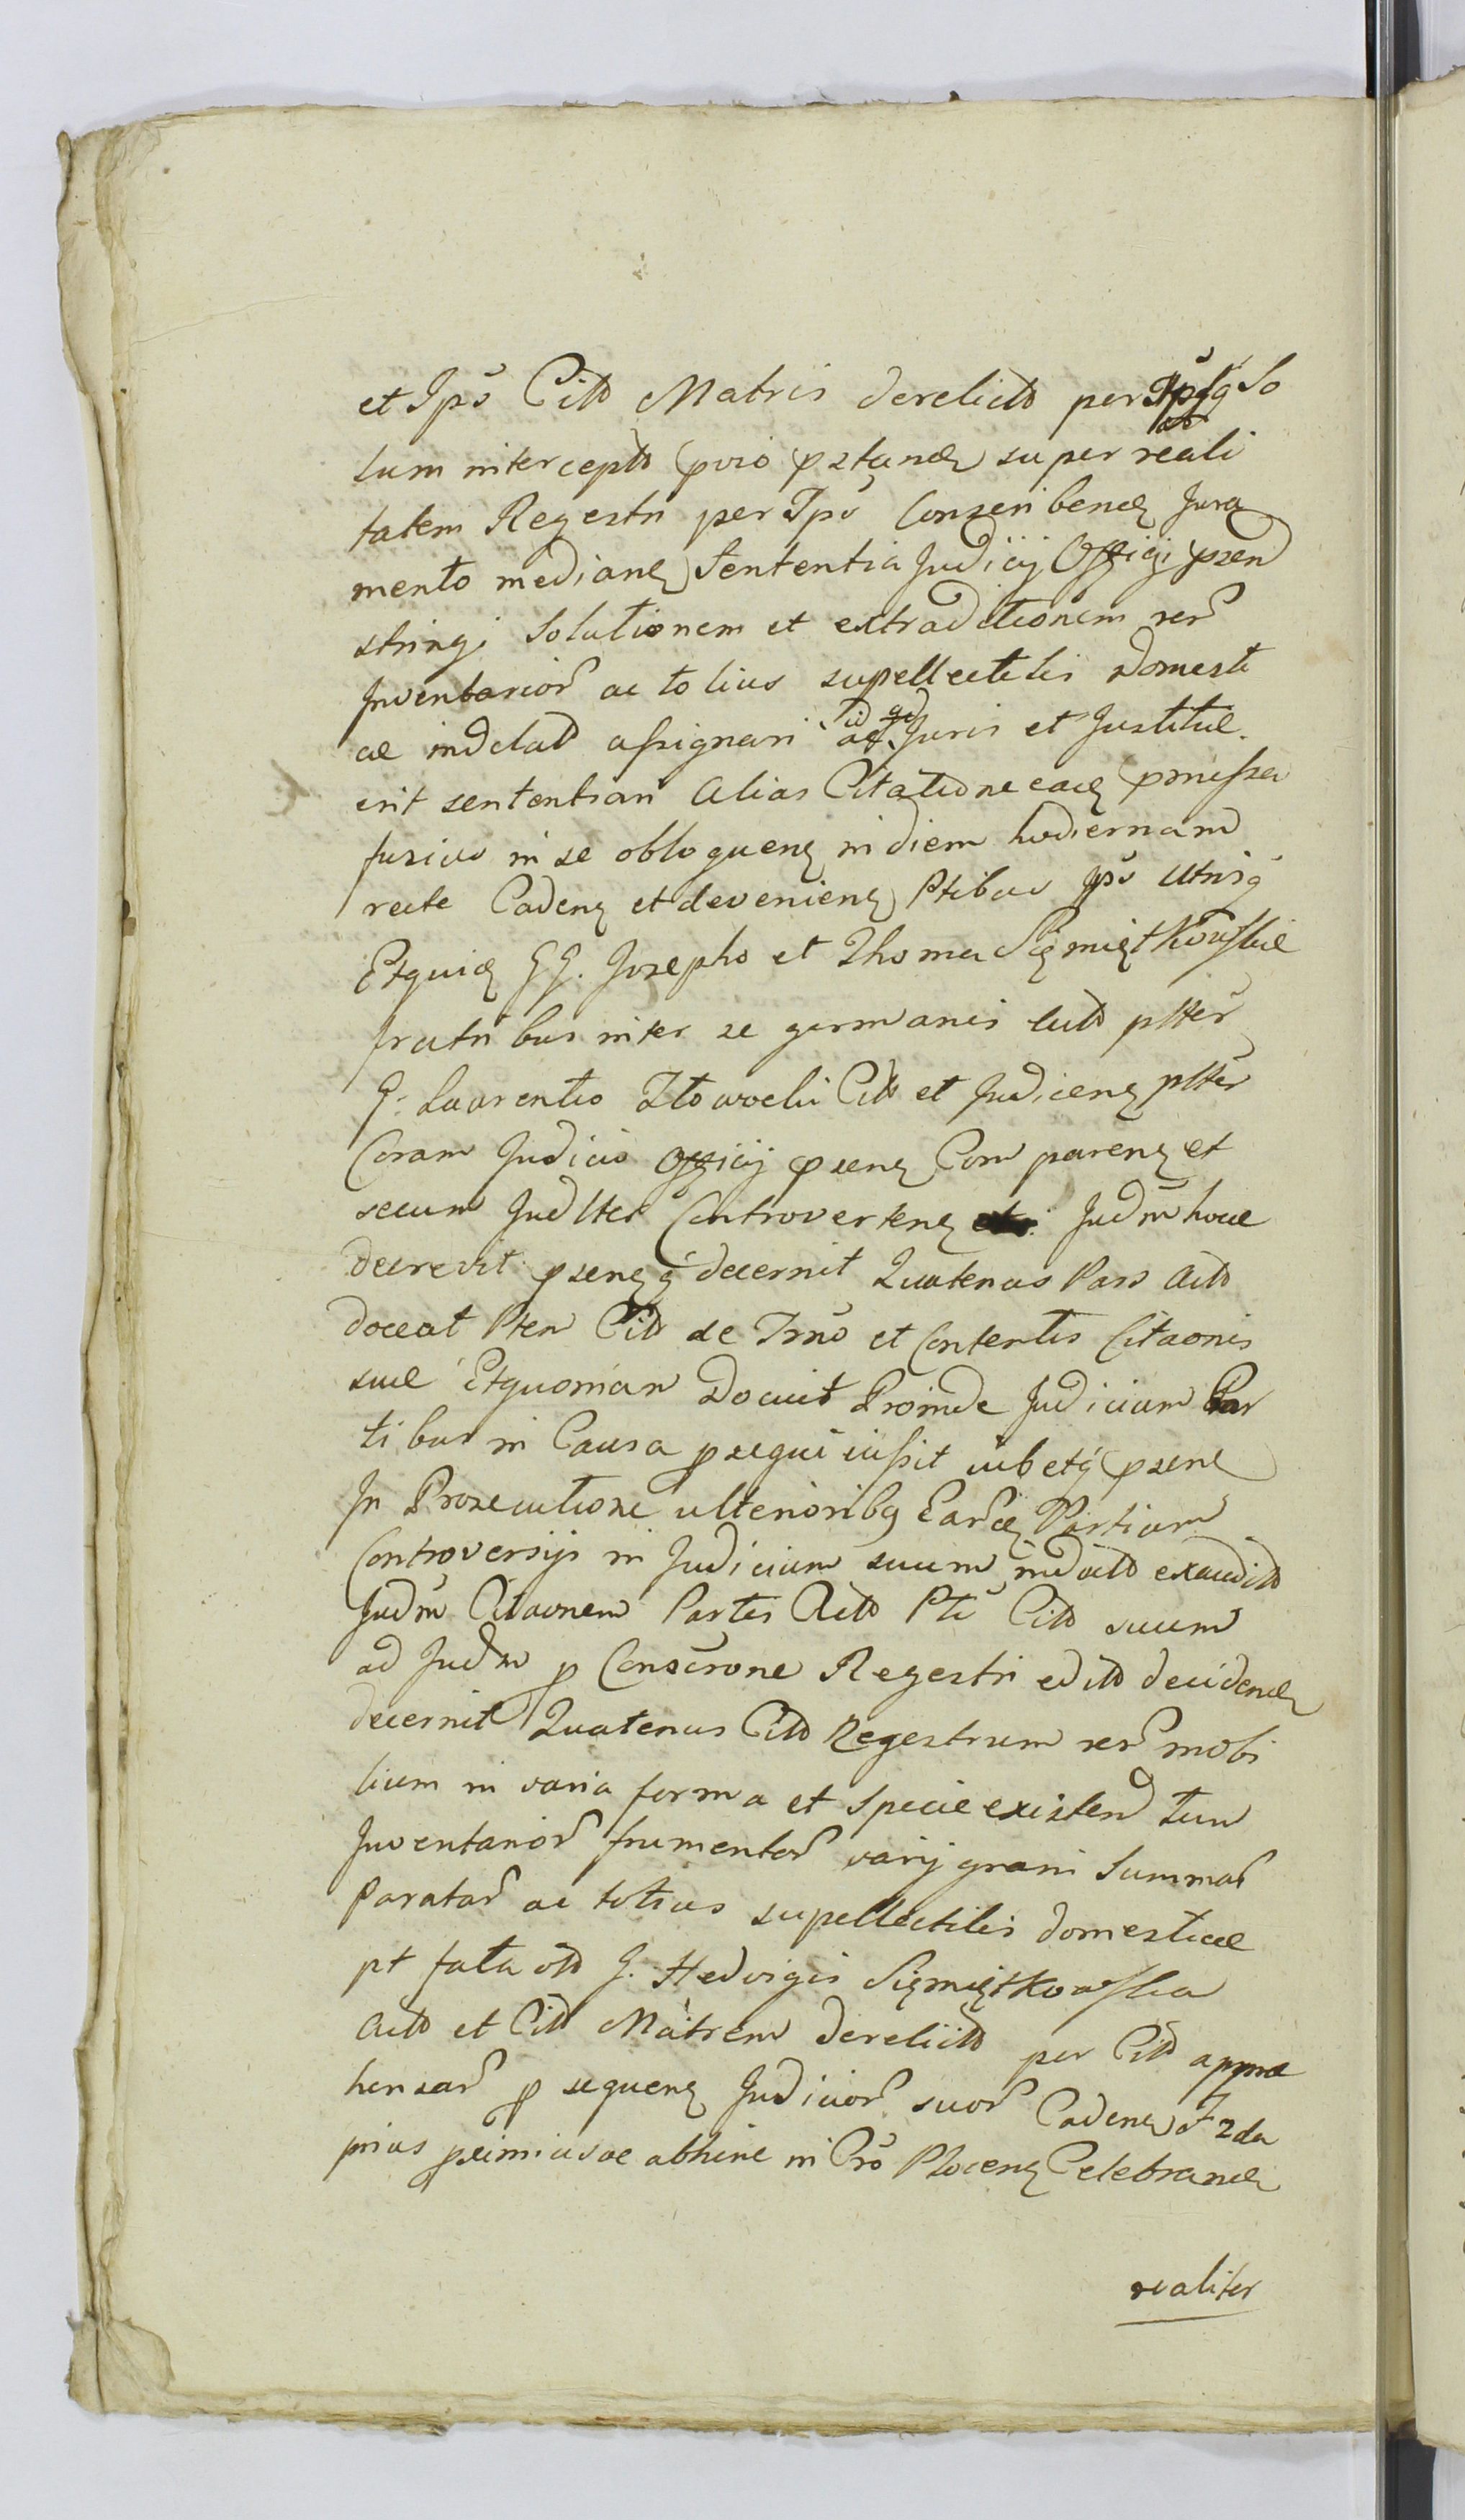 et Ipō Citō Matris derelictō per Ipōq So
lum interceptō pvio pstandē super reali
tatem Regestri per Ipō Conscribendē Jura
mento medianē Sententia Judicij Officij psen
stringi Solutionem et extraditionem rer
Inventarior ac totius supellectilis Domesti
cae indelatē assignari id qd Juris et Justitiae
erit sententiari Alias Citatione eadē pmissa
fusius in se obloquenē in diem hodiernam
recte Cadenē et devenienē Ptibus Ipō Utrisq
Etquidē GG. Josepho et Thoma Siemiętkowskie
fratribus inter se germanis Actō plter
G. Laurentio Itowocki Citō et Judicenē plter
Coram Judicio Officij psenē Comparenē et
secum Judlter Controvertenē Judm hocce
decrevit psenēq decernit Quatenus Pars Actō
doceat Ptem Citō de Trnō et Contentis Citaonis
suae Etquoniam Docuit Proinde Judicium Par
tibus in Causa psequi iussit iubetq psenē
In Prosecutione ulterioribq Eardē Partium
Controversijs in Judicium suum indultō exauditō
Judm Citaonem Partis Actō Pti Citō suum
ad Judm p Conscrone Regestri editō decidendē
decernit Quatenus Citō Regestrum rer mobi
lium in varia forma et specie existen tum
Inventarior frumentor varij grani Summar
Paratar ac totius supellectilis domesticae
pt fata olō G. Hedvigis Siemiętkowska
Actō et Citō Matrem derelictō per Citō appre
hensar p sequenē Judicior suor Cadenē F 2da
prius pximiusve abhinc in Crō Plocenē Celebrandē
realiter